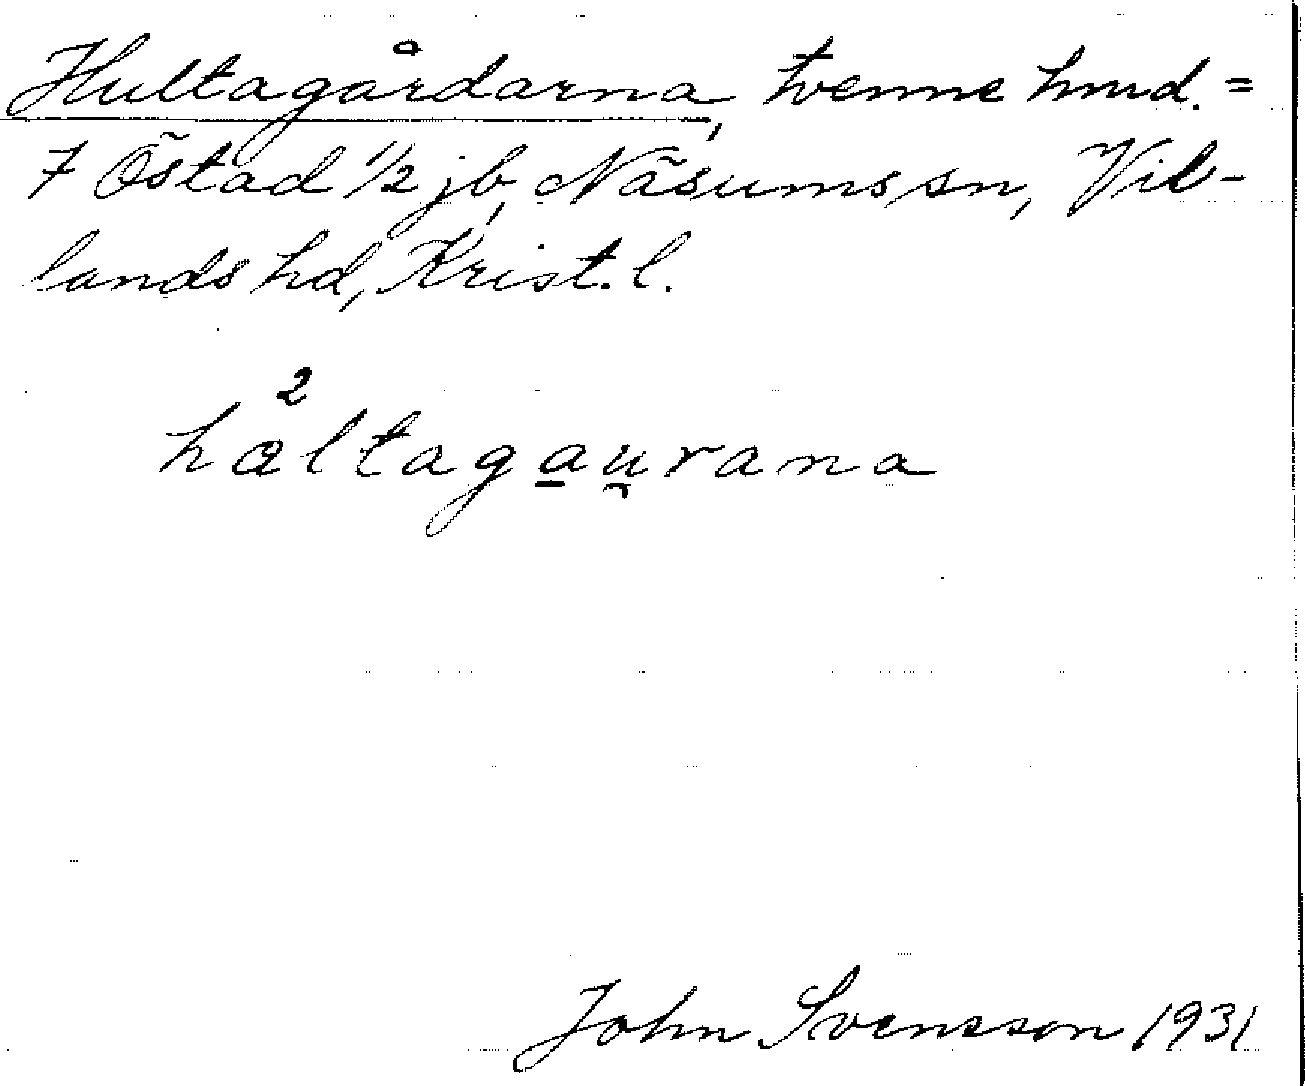 Hultagårdarna, tvenne hmd. =
7 Östad 1/2 jb, Näsums sn, Vil-
lands hd, Krist. l.
2
håltagau̯rana
John Svensson 1931